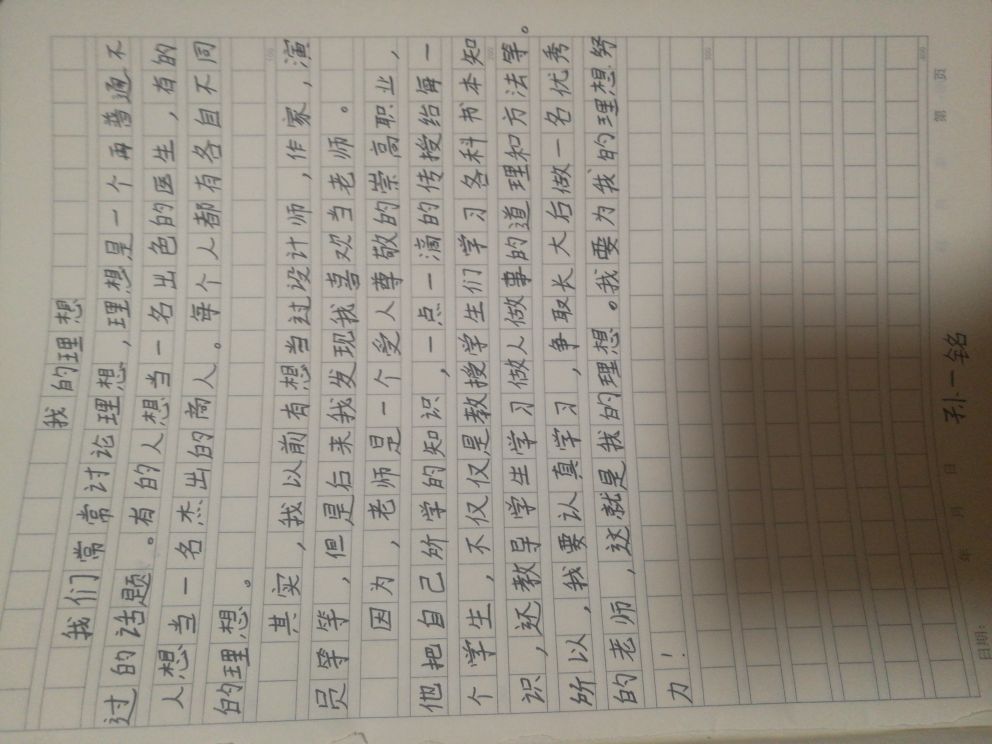 我的理想
我们常常讨论理想，理想是一个再普通不
过的话题。有的人想当一名出色的医生，有的
人想当一名杰出的商人。每个人都有各自不同
的理想。
其实，我以前有想当过设计师，作家，演
员等等，但是后来我发现我喜欢当老师。
因为，老师是一个受人尊敬的崇高职业，
他把自己所学的知识，一点一滴的传授给每一
个学生，不仅仅是教授学生们学习各科书本知
识，还教导学生学习做人做事的道理和方法等。
所以，我要认真学习，争取长大后做一名优秀
的老师，这就是我的理想。我要为我的理想努
力！
100
200
300
400
日期： 年 月 日 孙一铭 第 页